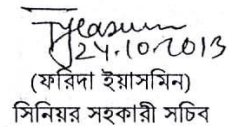 24.10.2013
(ফরিদা ইয়াসমিন)
সিনিয়র সহকারী সচিব